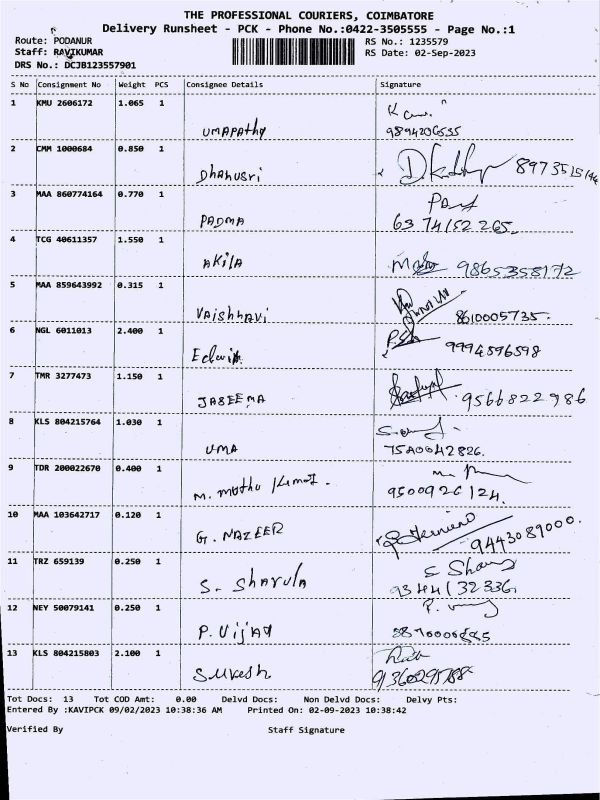 THE PROFESSIONAL COURIERS, COIMBATORE
Delivery Runsheet - PCK - Phone No.:0422-3505555 - Page No.:1
Route: PODANUR RS No.: 1235579
Staff: RAVIKUMAR RS Date: 02-Sep-2023
DRS No.: DCJB123557901
S No Consignment No Weight PCS Consignee Details Signature
1 KMU 2606172 1.065 1
UMAPAthy 9894206535
2 CMM 1000684 0.850 1
Dhanusri
3 MAA 860774164 0.770 1
PADMA 63 74152 265.
4 TCG 40611357 1.550 1
AKilA 9865358172
5 MAA 859643992 0.315 1
VAishnavi 8610005735.
6 NGL 6011013 2.400 1
Edwin 9994596598
7 TMR 3277473 1.150 1
JASEEMA 9566822986
8 KLS 804215764 1.030 1
UMA
9 TDR 200022670 0.400 1
M. Muthu Kumar. 9500926124.
10 MAA 103642717 0.120 1
G. NAZEER 9443089000.
11 TRZ 659139 0.250 1
S. Sharula 9344132336
12 NEY 50079141 0.250 1
P. Vijay
13 KLS 804215803 2.100 1
SUKesh
Tot Docs: 13 Tot COD Amt: 0.00 Delvd Docs: Non Delvd Docs: Delvy Pts:
Entered By :KAVIPCK 09/02/2023 10:38:36 AM Printed On: 02-09-2023 10:38:42
Verified By Staff Signature